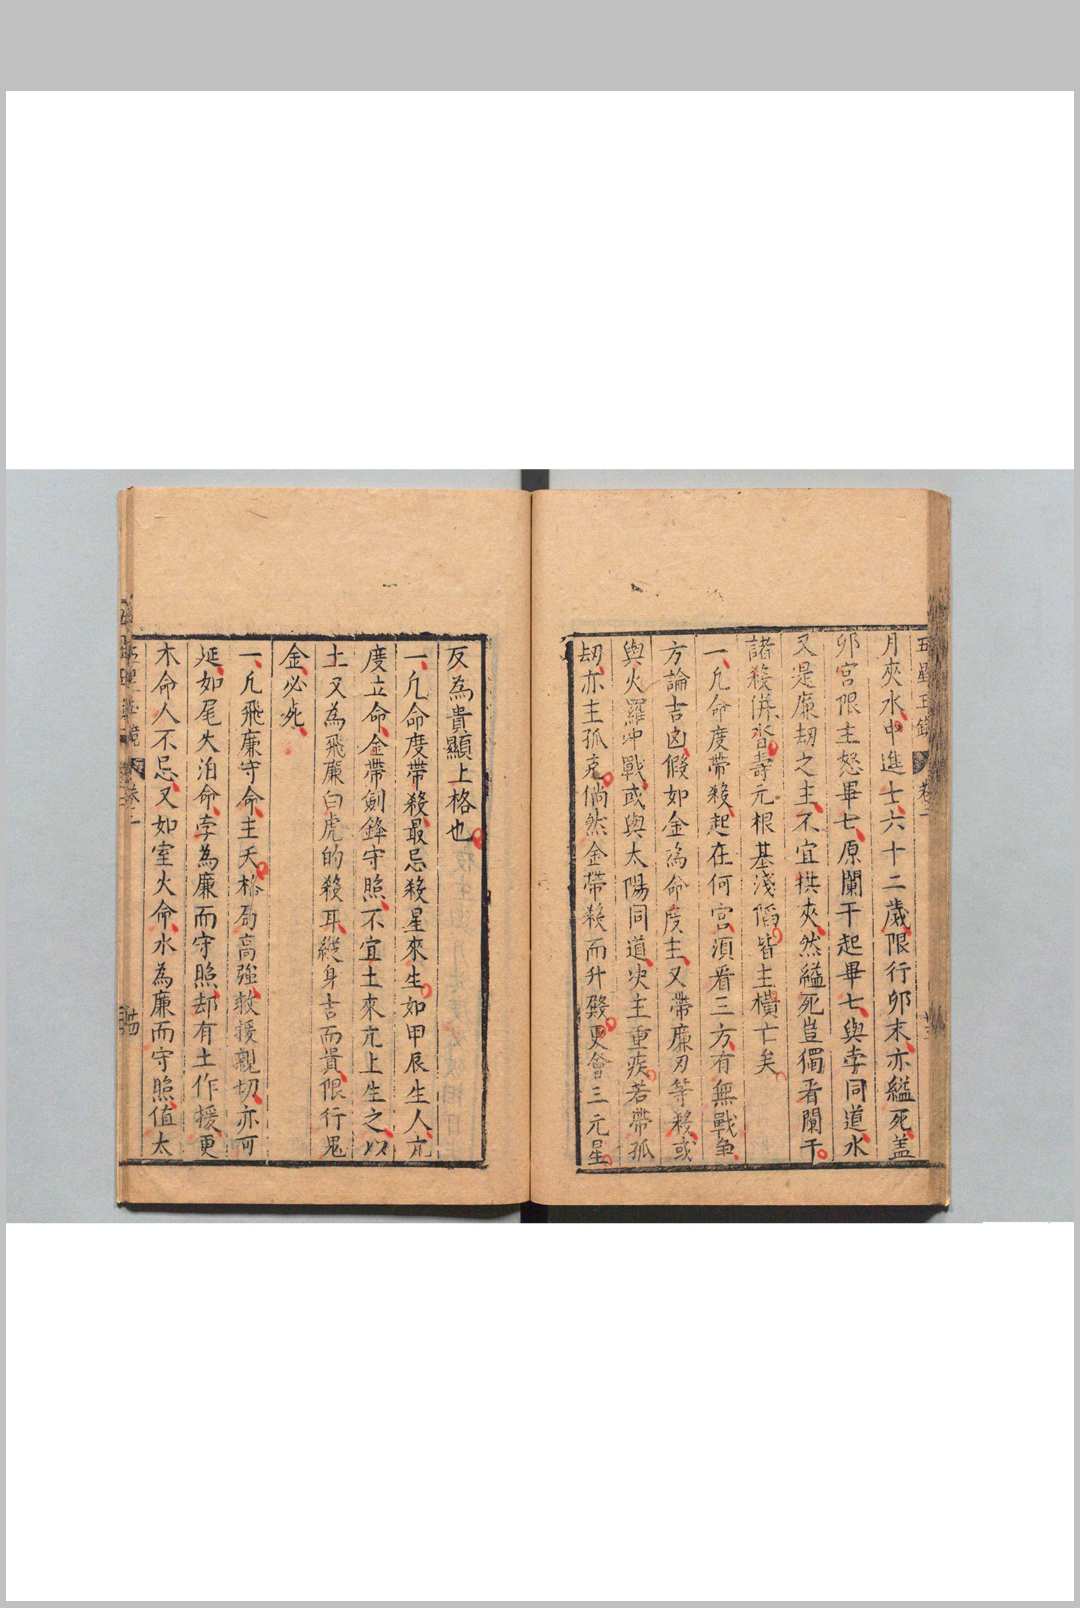 月夾水中進士六十二歲限行卯末亦縊死盖
卯宮限主怒畢七原闌干起畢七與孛同道水
又是廉刧之主不宜拱夾然縊死豈獨看闌干
諸殺併沓壽元根基淺陷皆主橫亡矣
一凡命度帶殺起在何宮湏看三方有無戰爭
方論吉凶假如金為命度主又帶廉刃等殺或
與火羅冲戰或與太陽同道决主重疾若帶孤
刼亦主孤克倘然金帶殺而升殿更會三元星
反為貴顯上格也
一凡命度帶殺最忌殺星來生如甲辰生人亢
度立命金帶劍鋒守照不宜土來亢上生之以
土又為飛廉白虎的殺耳縱身吉而貴限行鬼
金必死
一凡飛廉守命主夭格局高強救援親切亦可
延如尾火泊命孛為廉而守照却有土作援更
木命人不忌又如室火命水為廉而守照值太